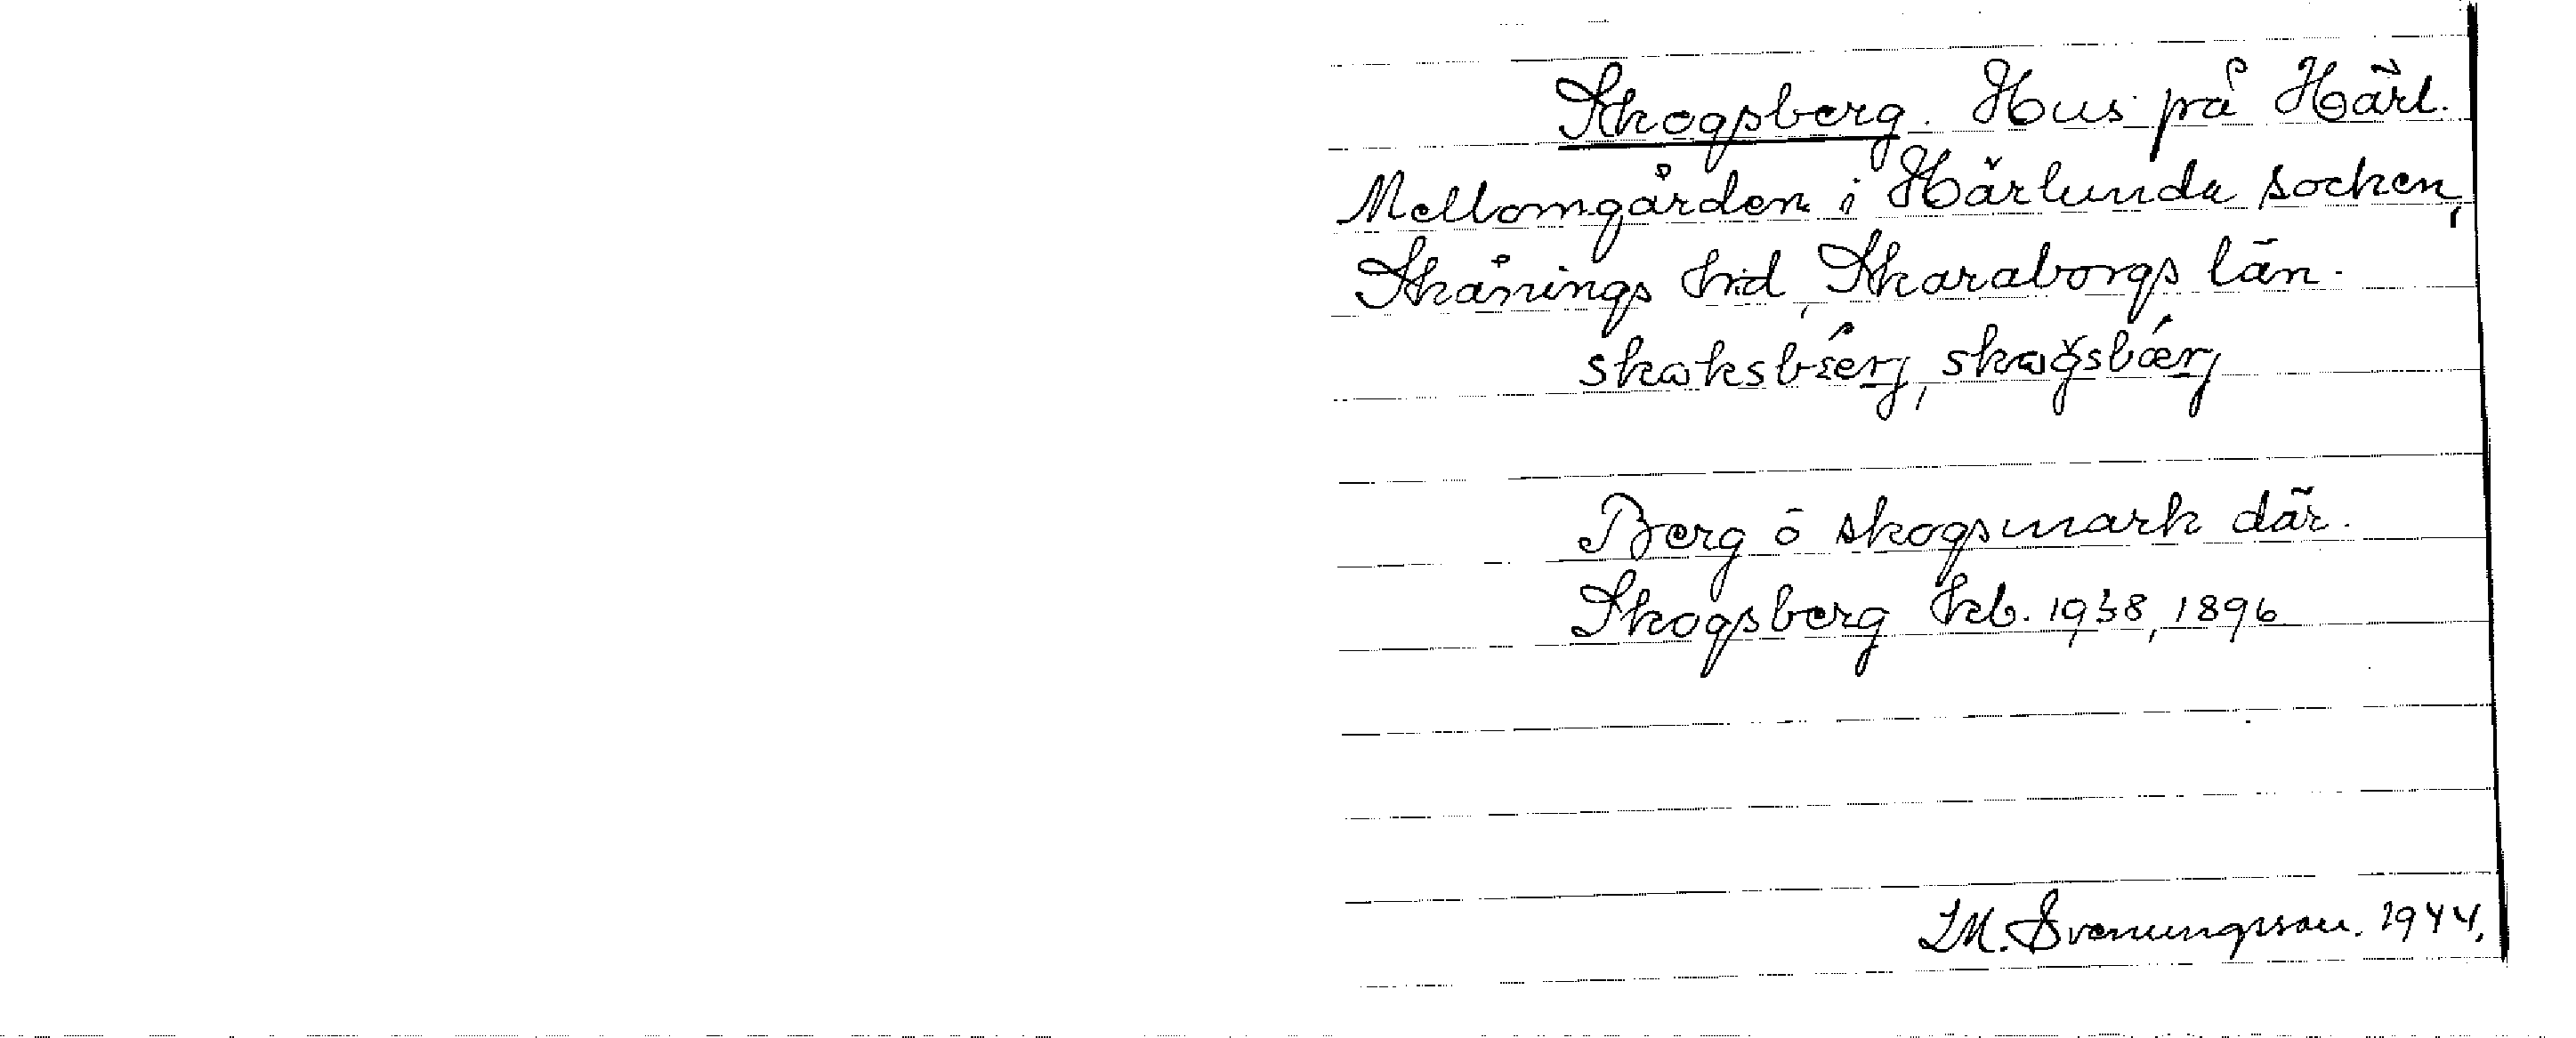 Skogsberg. Hus på Härl.
Mellomgården i Härlunda socken,
Skånings hd, Skaraborgs län.
skɷksbærj, skɷgsbærj
Berg o skogsmark där.
Skogsberg kb. 1938, 1896
I.M. Svenungsson. 1944.